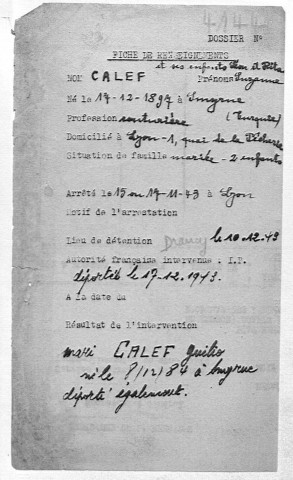 4144
DOSSIER N°
FICHE DE RENSEIGNEMENTS
et ses enfants Léon et Rita
NOM CALEF Prénoms Suzanne
Né le 17-12-1897 à Smyrne
Profession couturière (Turquie)
Domicilié à Lyon-1, quai de la Pêcherie
Situation de famille mariée - 2 enfants
Arrêté le 15 ou 17-11-43 à Lyon
Motif de l'arrestation
Lieu de détention Drancy le 10-12-43
Autorité française intervenue : I.P.
déportée le 17-12-1943.
A la date du
Résultat de l'intervention
mari CALEF Guilio
né le ?/12/84 à Smyrne
déporté également.